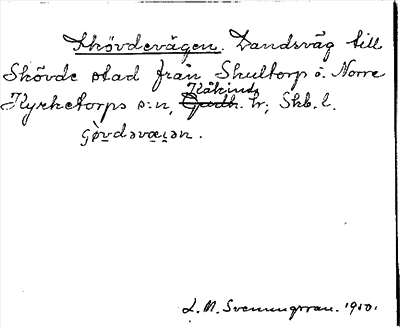 Skövdevägen. Landsväg till
Skövde stad från Skultorp o. Norra
Kyrketorps s:n, Kåkinds hr; Skb. l.
L. M. Svenungsson. 1950.